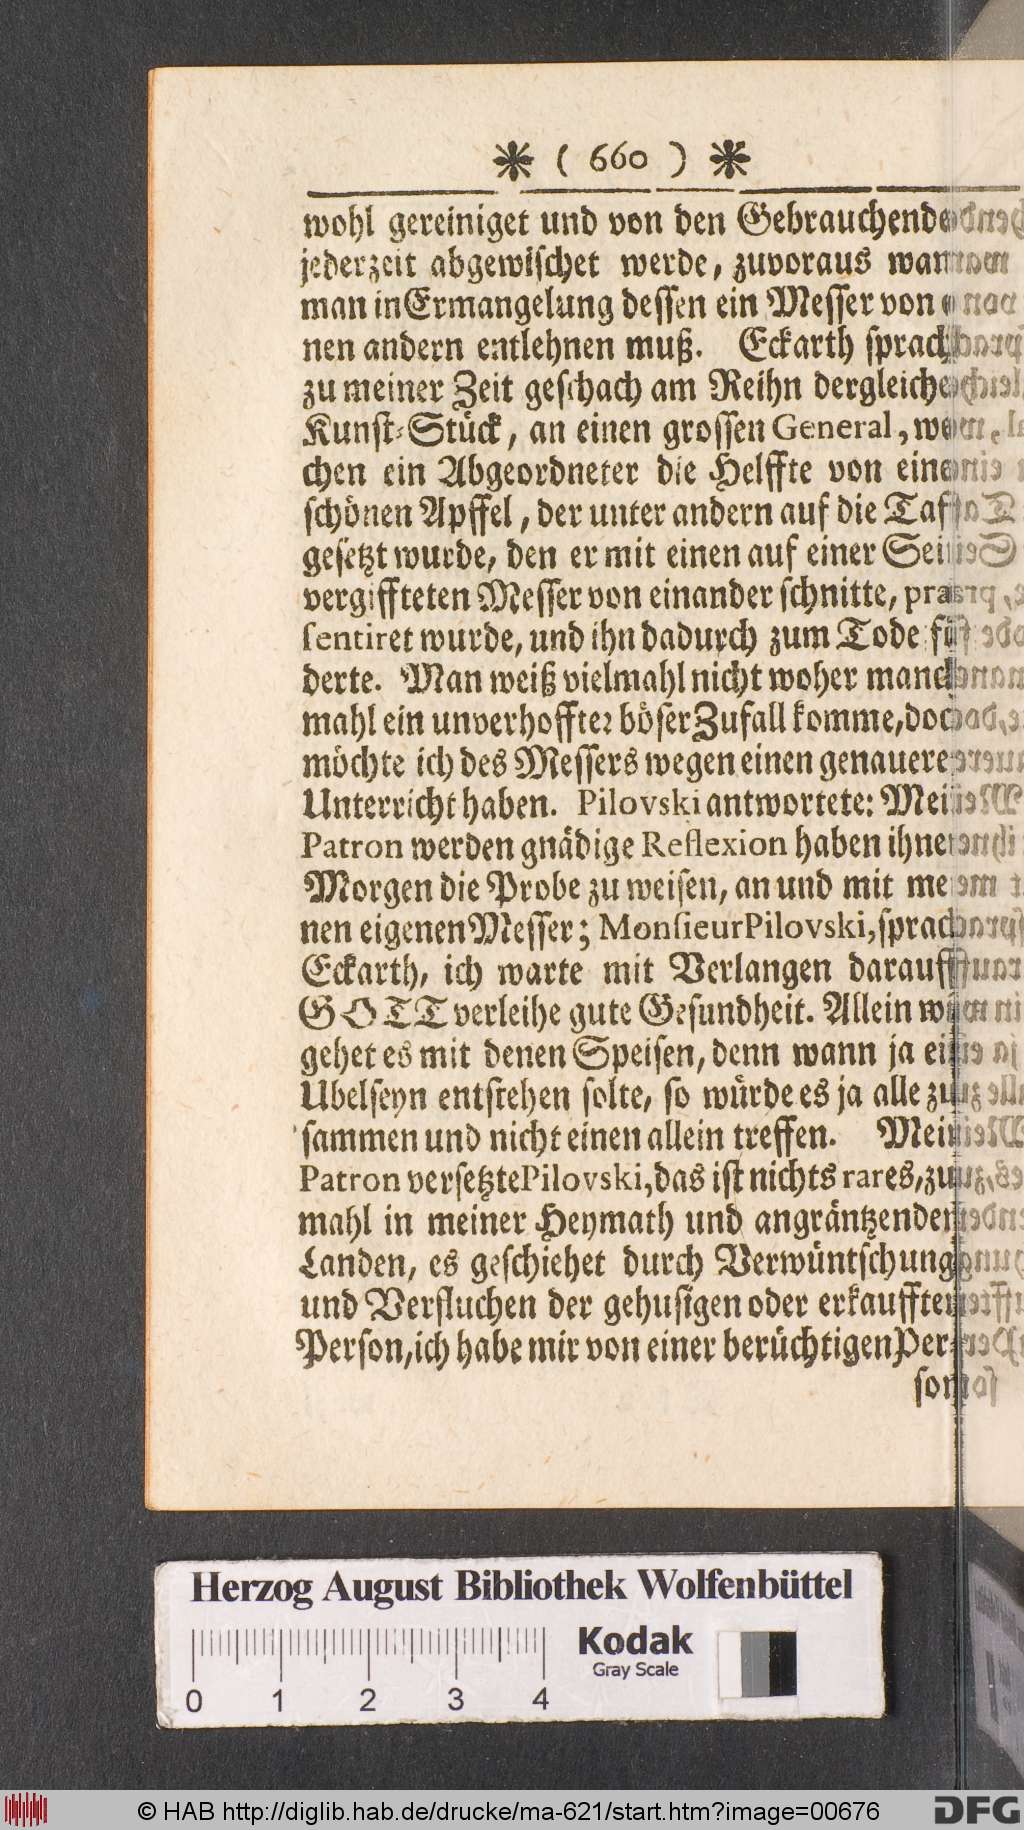 * ( 660 ) *
wohl gereiniget und von den Gebrauchende
jederzeit abgewischet werde, zuvoraus wann
man in Ermangelung dessen ein Messer von
nen andern entlehnen muß. Eckarth sprach
zu meiner Zeit geschach am Reihn dergleiche
Kunst-Stück, an einen grossen General, we
chen ein Abgeordneter die Helffte von eine
schönen Apffel, der unter andern auf die Taf
gesetzt wurde, den er mit einen auf einer Sei
vergiffteten Messer von einander schnitte, præ
sentiret wurde, und ihn dadurch zum Tode fö
derte. Man weiß vielmahl nicht woher manch
mahl ein unverhoffter böser Zufall komme, doch
möchte ich des Messers wegen einen genauere
Unterricht haben. Pilovski antwortete: Mei
Patron werden gnädige Reflexion haben ihne
Morgen die Probe zu weisen, an und mit me
nen eigenen Messer; Monsieur Pilovski, sprach
Eckarth, ich warte mit Verlangen darauff
GOTT verleihe gute Gesundheit. Allein wie
gehet es mit denen Speisen, denn wann ja ein
Ubelseyn entstehen solte, so würde es ja alle zu
sammen und nicht einen allein treffen. Mein
Patron versetzte Pilovski, das ist nichts rares, zu
mahl in meiner Heymath und angräntzenden
Landen, es geschiehet durch Verwüntschung
und Verfluchen der gehusigen oder erkaufften
Person, ich habe mir von einer berüchtigen Per-
son
Herzog August Bibliothek Wolfenbüttel
Kodak
Gray Scale
0 1 2 3 4
© HAB http://diglib.hab.de/drucke/ma-621/start.htm?image=00676
DFG